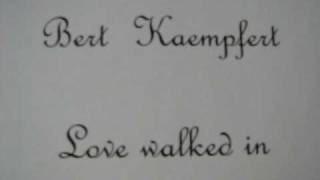 Bert Kaempfert
Love walked in